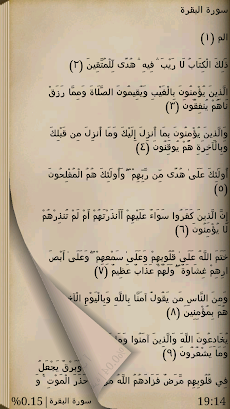 سورة البقرة
الم (١)
ذَلِكَ الْكِتَابُ لَا رَيْبَ ۛ فِيهِ ۛ هُدًى لِلْمُتَّقِينَ (٢)
الَّذِينَ يُؤْمِنُونَ بِالْغَيْبِ وَيُقِيمُونَ الصَّلَاةَ وَمِمَّا رَزَقْ
نَاهُمْ يُنفِقُونَ (٣)
وَالَّذِينَ يُؤْمِنُونَ بِمَا أُنزِلَ إِلَيْكَ وَمَا أُنزِلَ مِن قَبْلِكَ
وَبِالْآخِرَةِ هُمْ يُوقِنُونَ (٤)
أُولَئِكَ عَلَى هُدًى مِّن رَّبِّهِمْ ۖ وَأُولَئِكَ هُمُ الْمُفْلِحُونَ
(٥)
إِنَّ الَّذِينَ كَفَرُوا سَوَاءٌ عَلَيْهِمْ أَأَنذَرْتَهُمْ أَمْ لَمْ تُنذِرْهُمْ
لَا يُؤْمِنُونَ (٦)
خَتَمَ اللَّهُ عَلَى قُلُوبِهِمْ وَعَلَى سَمْعِهِمْ ۖ وَعَلَى أَبْصَ
ارِهِمْ غِشَاوَةٌ ۖ وَلَهُمْ عَذَابٌ عَظِيمٌ (٧)
وَمِنَ النَّاسِ مَن يَقُولُ آمَنَّا بِاللَّهِ وَبِالْيَوْمِ
هُم بِمُؤْمِنِينَ (٨)
يُخَادِعُونَ اللَّهَ وَالَّذِينَ آمَنُوا
وَمَا يَشْعُرُونَ (٩)
فِي قُلُوبِهِم مَّرَضٌ فَزَادَهُمُ اللَّهُ
وَبَرْقٌ يَجْعَلُ
حَذَرَ الْمَوْتِ ۚ و
19:14
سورة البقرة | %0.15